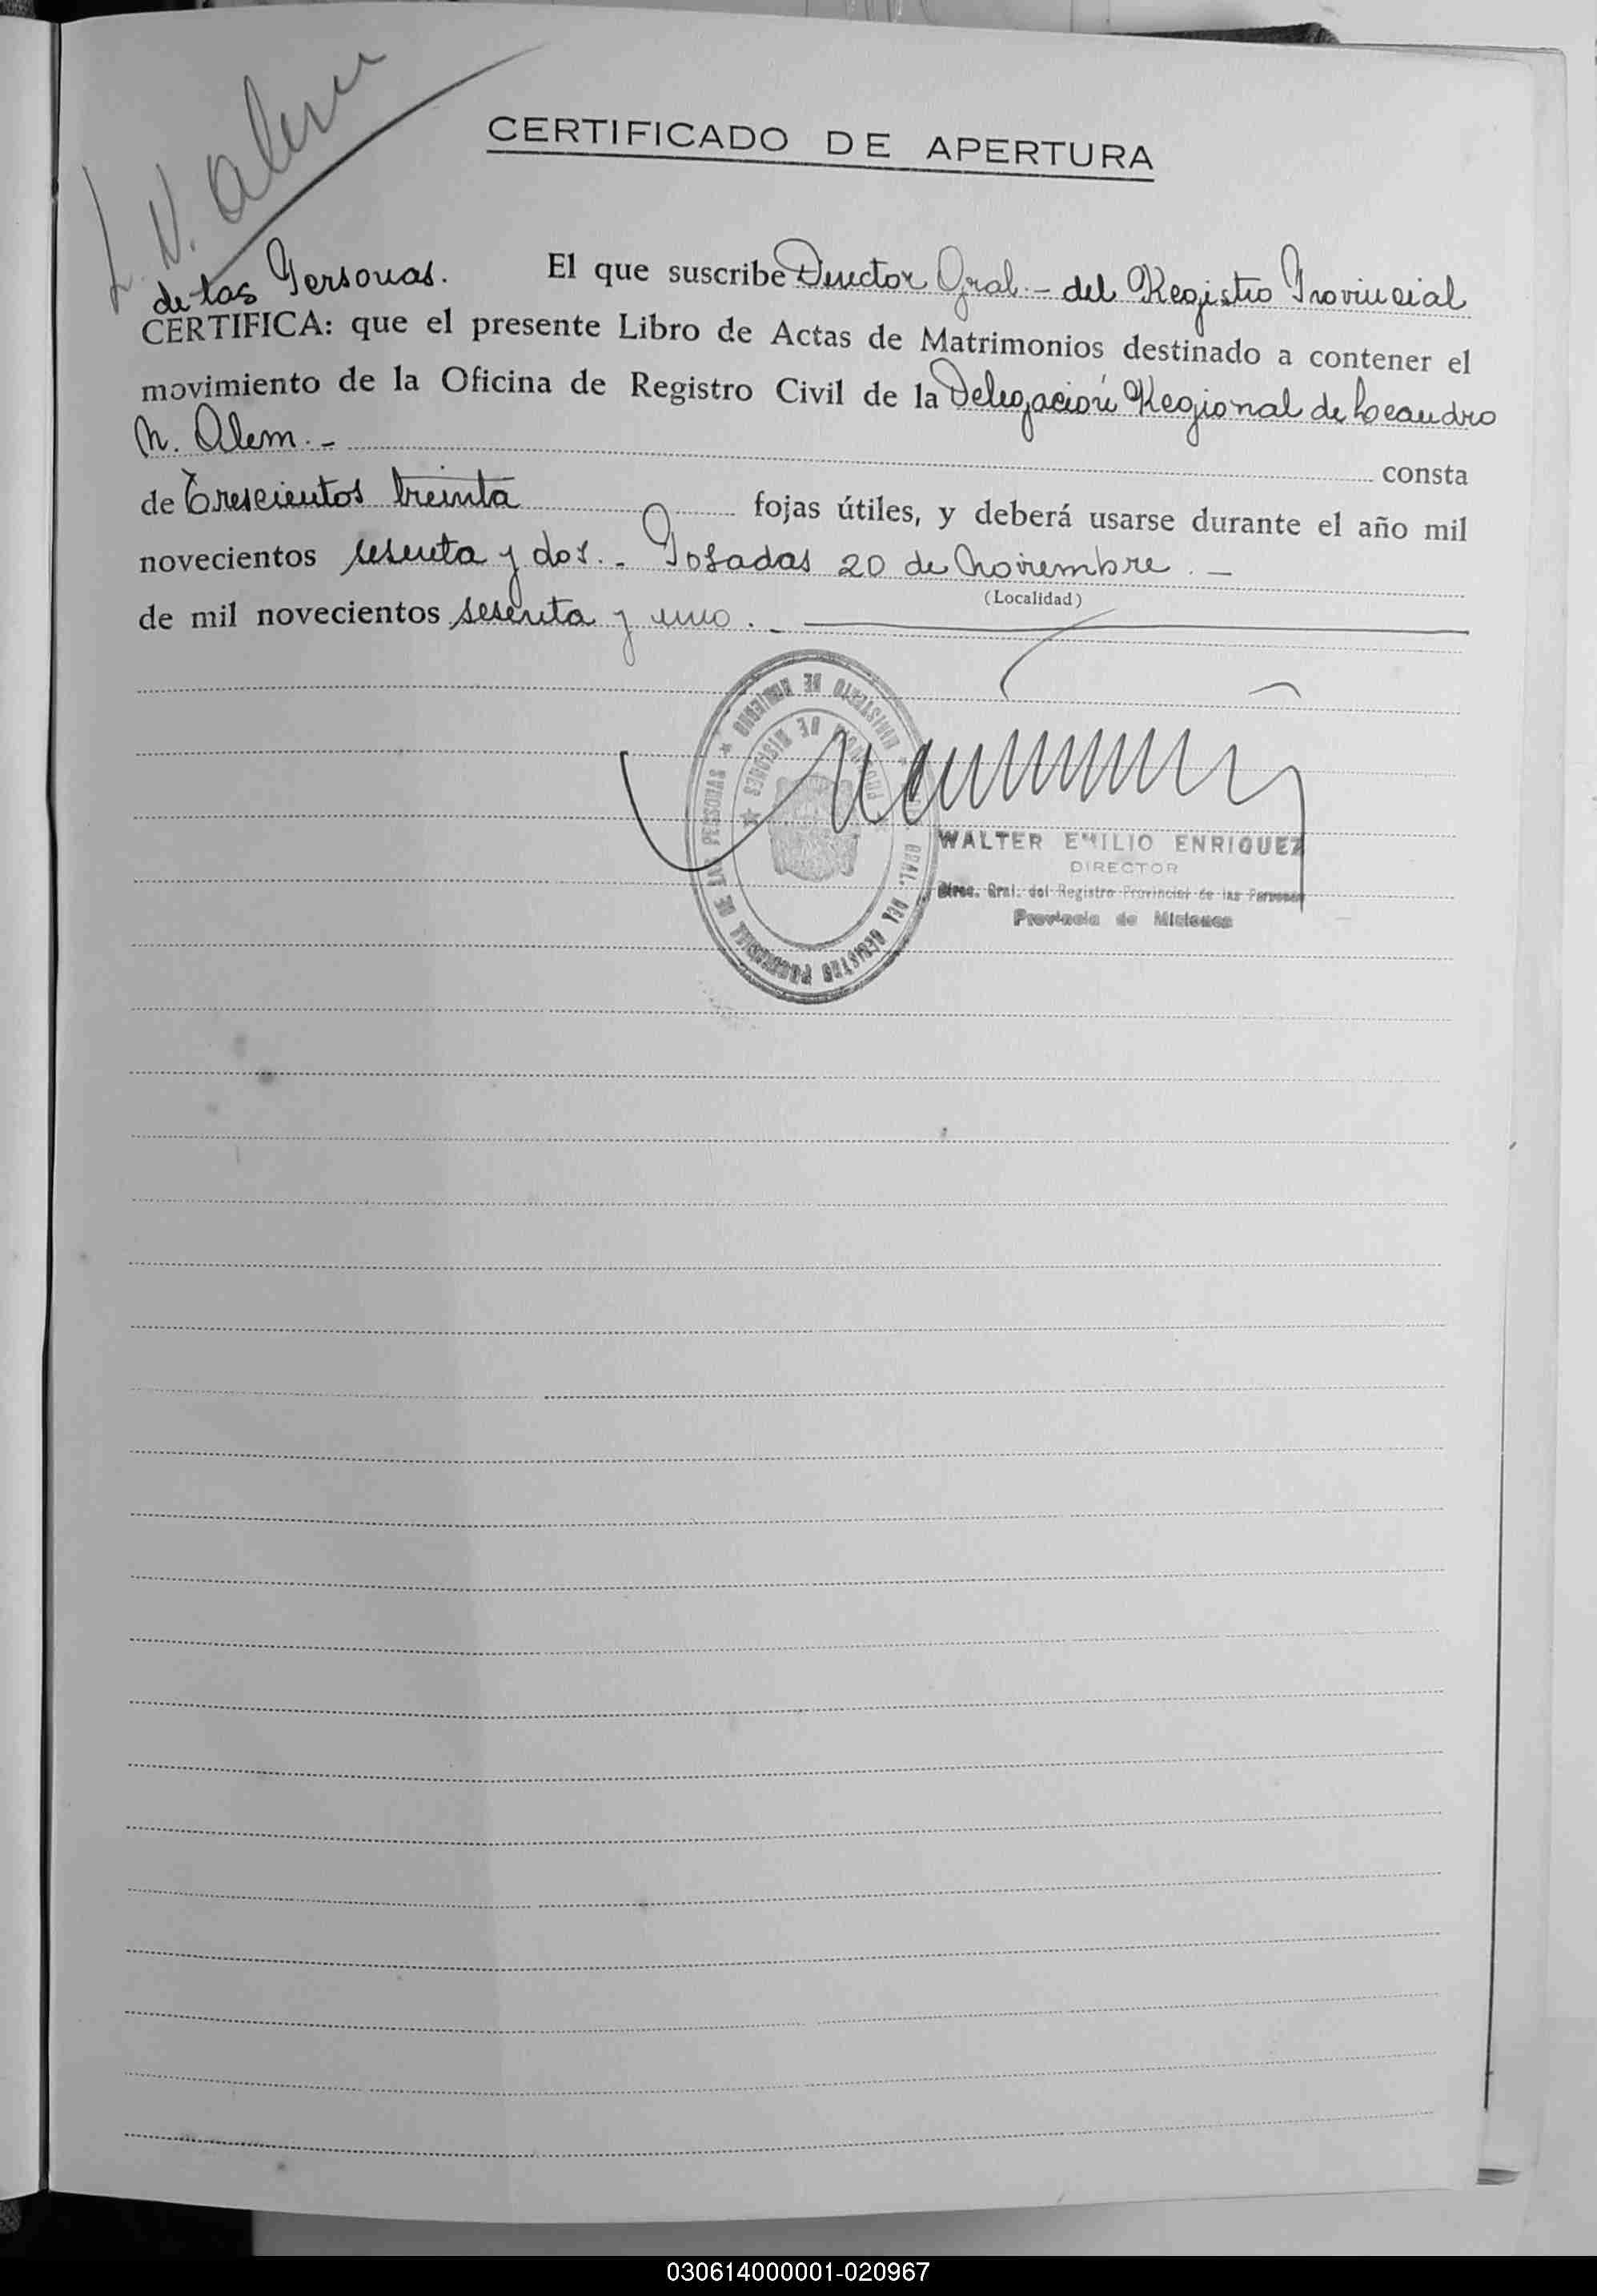 L. N. Alem
CERTIFICADO DE APERTURA
El que suscribe Director Gral. - del Registro Provincial
de las Personas.
CERTIFICA: que el presente Libro de Actas de Matrimonios destinado a contener el
movimiento de la Oficina de Registro Civil de la Delegación Regional de Leandro
N. Alem. - consta
de Trescientos treinta fojas útiles, y deberá usarse durante el año mil
novecientos sesenta y dos. - Posadas 20 de Noviembre. -
(Localidad)
de mil novecientos sesenta y uno. -
MINISTERIO DE GOBIERNO
PROVINCIA DE MISIONES
GRAL. DEL REGISTRO PROVINCIAL DE LAS PERSONAS
WALTER EMILIO ENRIQUEZ
DIRECTOR
Direc. Gral. del Registro Provincial de las Personas
Provincia de Misiones
030614000001-020967